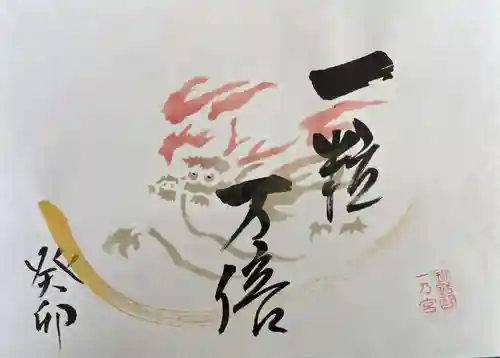 一粒
万倍
癸卯
一乃宮